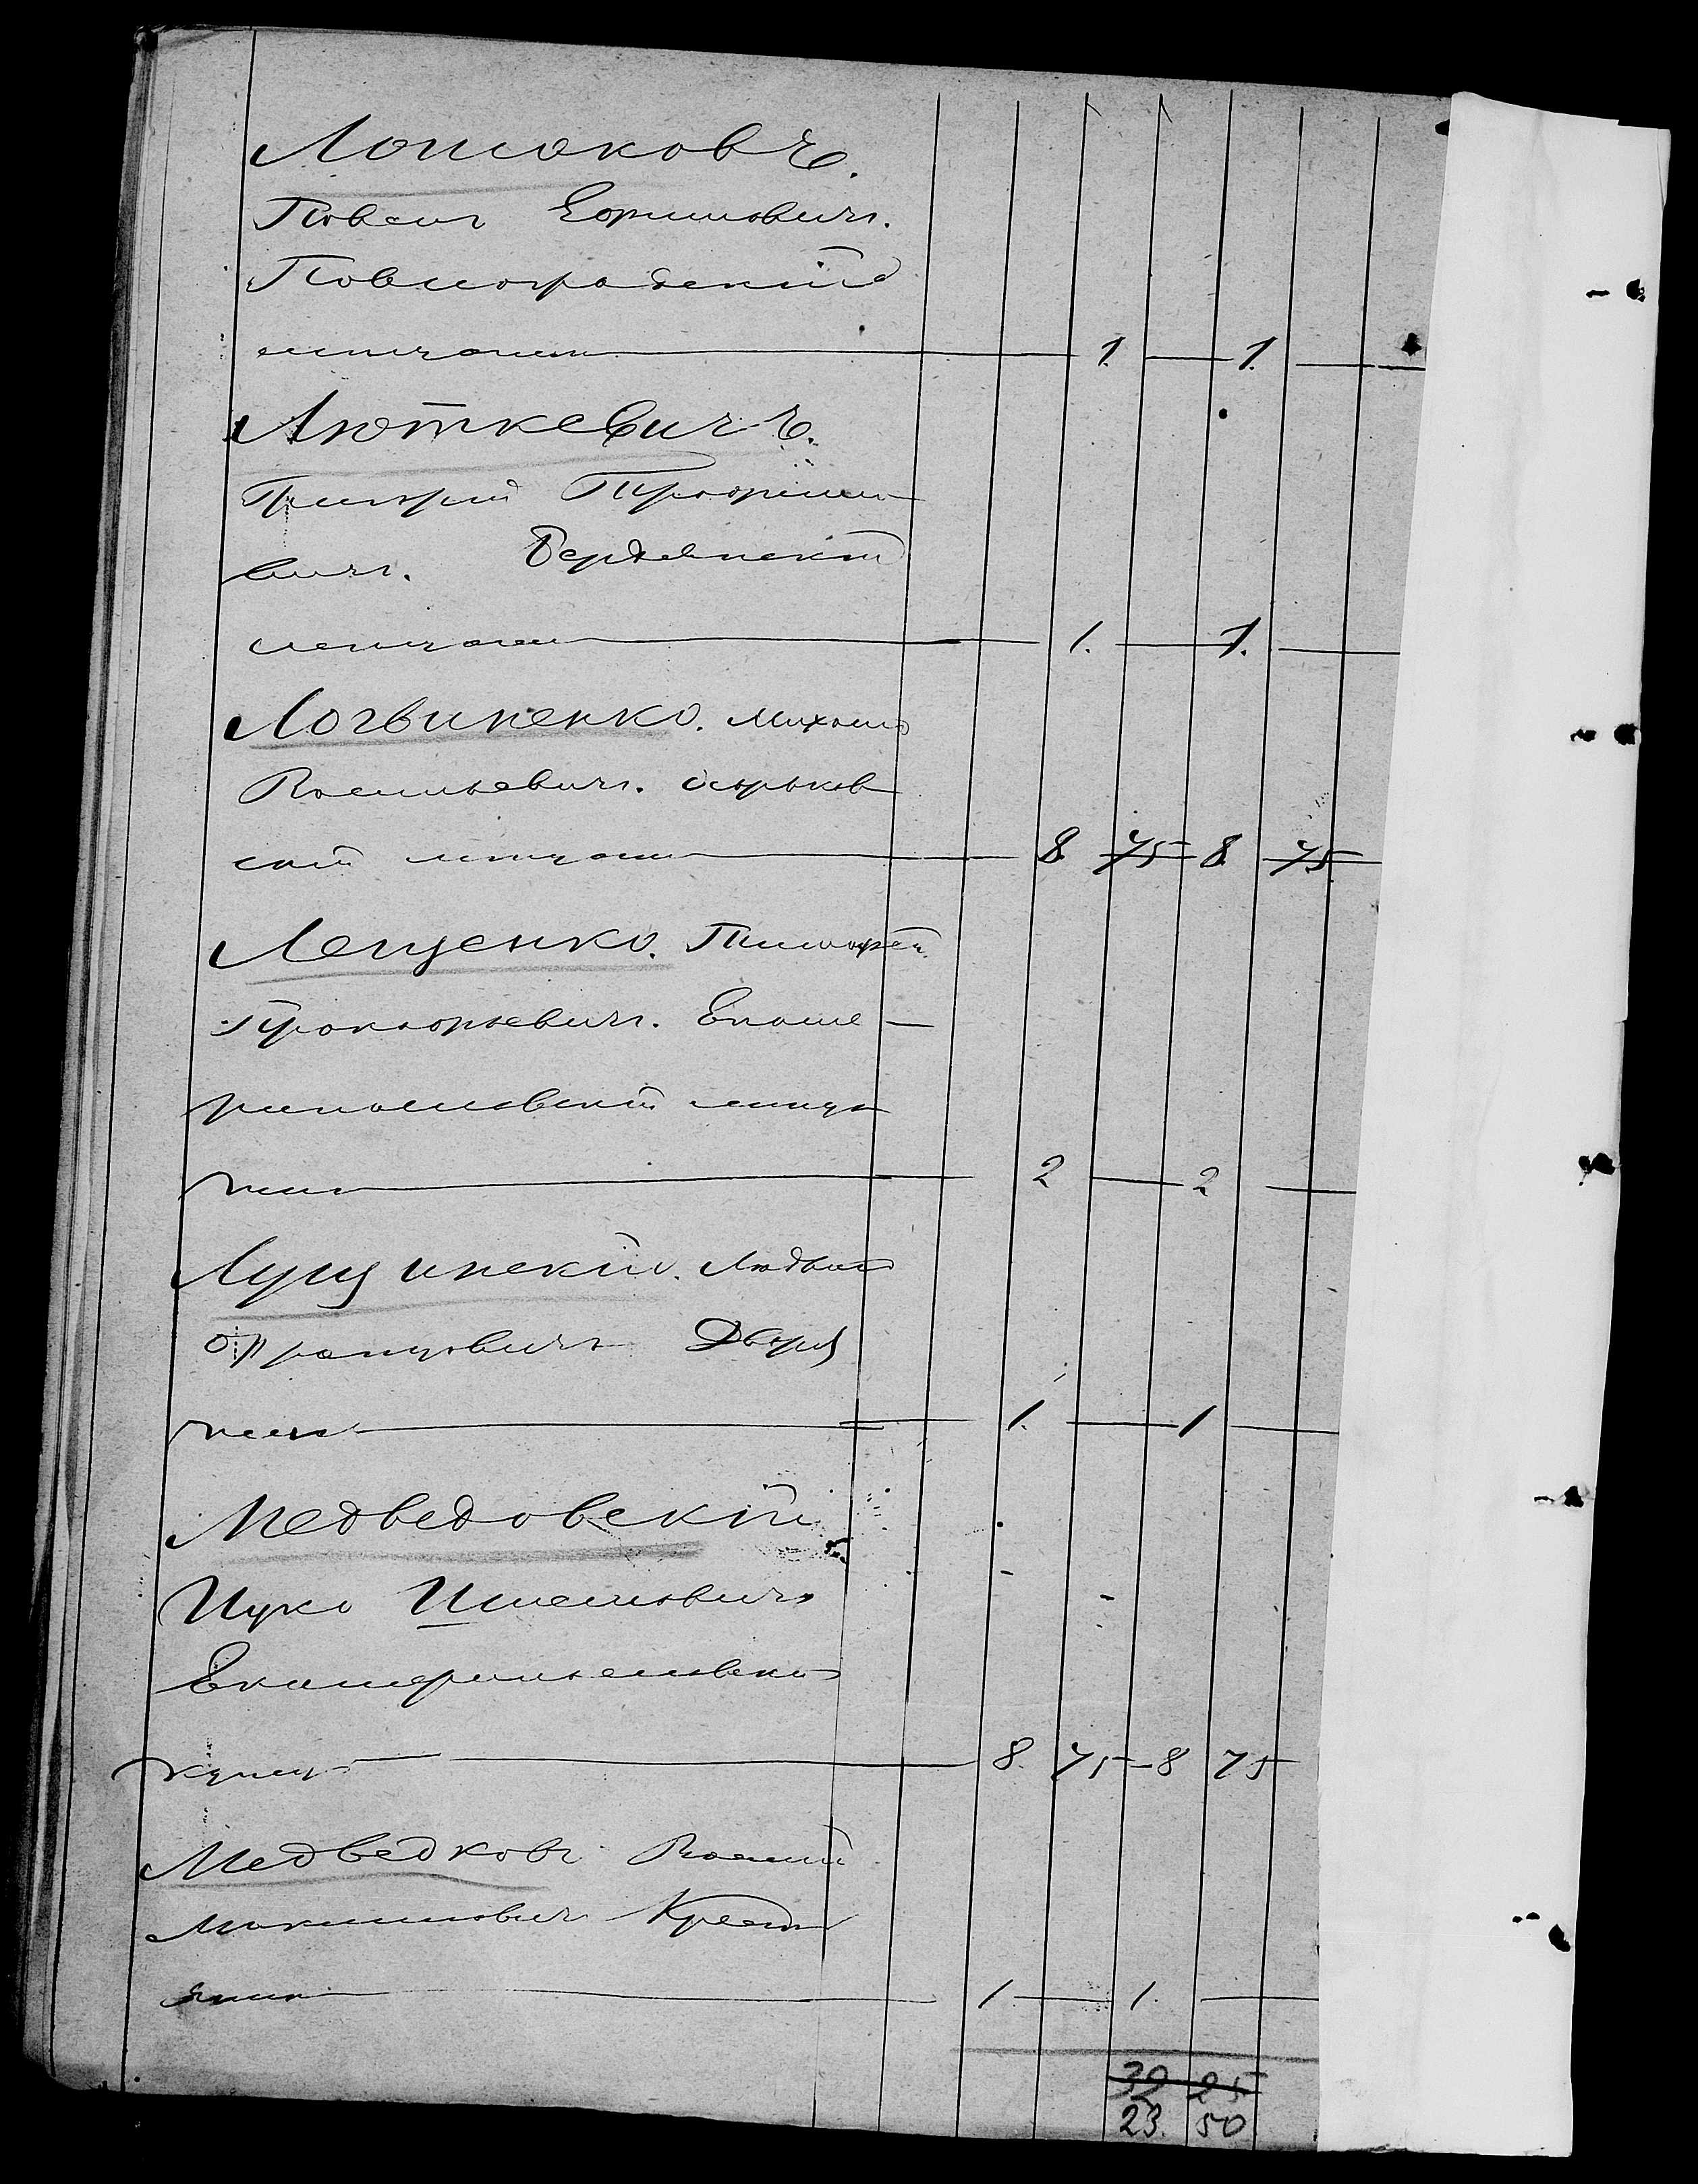 Лошаковъ.
Павелъ Ефимовичъ.
Павлоградскій
мѣщанинъ 1. 1.
Люткевичъ.
Григорій Григорье-
вичъ. Бердянскій
мѣщанинъ 1. 1.
Логвиненко. Михаилъ
Васильевичъ. Харьков
скій мѣщанинъ 8 75 8 75
Лещенко. Тимофей
Прокофьевичъ. Екате-
ринославскій мѣща
нинъ 2 2
Лущинскій. Людвигъ
Францовичъ Дворя
нинъ 1. 1
Медведовскій
Ицко
Екатеринославскій
купецъ 8. 75 8 75
Медведковъ Василій
Максимовичъ Кресть
янинъ 1 1.
32 25
23. 50